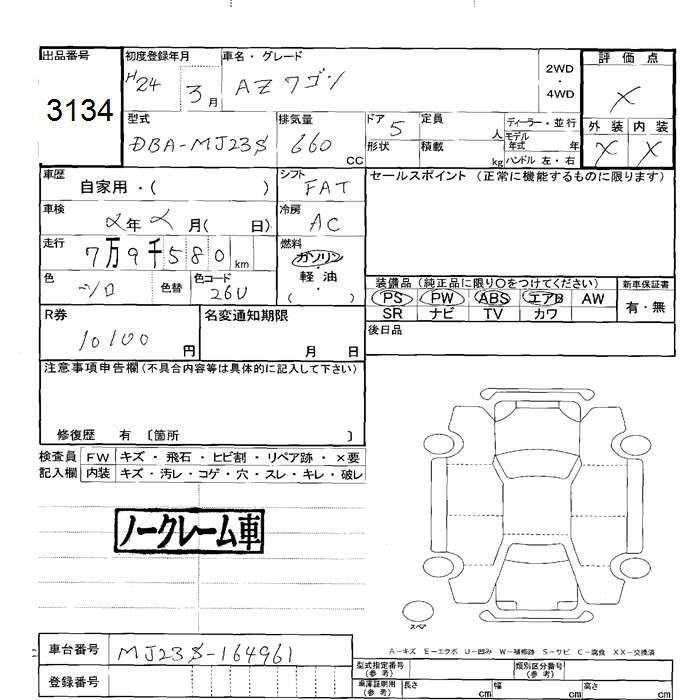 出品番号 初度登録年月 車名・グレード 2WD・4WD 評価点
3134 H24 3月 AZワゴン X
型式 排気量 ドア 5 定員 人 ディーラー・並行 外装 内装
DBA-MJ23S 660 CC 形状 積載 kg モデル年式 年 X X
ハンドル 左・右
車歴 自家用・( ) シフト FAT セールスポイント (正常に機能するものに限ります)
車検 年 月( 日) 冷房 AC
走行 7万9千580km 燃料 ガソリン・軽油・( )
色 シロ 色替 色コード 26U 装備品(純正品に限り〇をつけてください) 新車保証書
PS PW ABS エアB AW 有・無
SR ナビ TV カワ
R券 10100円 名変通知期限 月 日 後日品
注意事項申告欄(不具合内容等は具体的に記入して下さい)
修復歴 有 〔箇所 〕
検査員 FW キズ・飛石・ヒビ割・リペア跡・×要
記入欄 内装 キズ・汚レ・コゲ・穴・スレ・キレ・破レ
ノークレーム車
スペア
A-キズ E-エクボ U-凹み W-補修跡 S-サビ C-腐食 XX-交換済
車台番号 MJ23S-164961 型式指定番号(参考) 類別区分番号(参考)
登録番号 車庫証明用(参考) 長さ cm 幅 cm 高さ cm